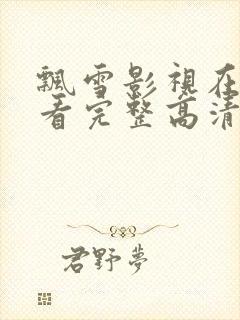 飄雪影視在
看完整高清
君野夢